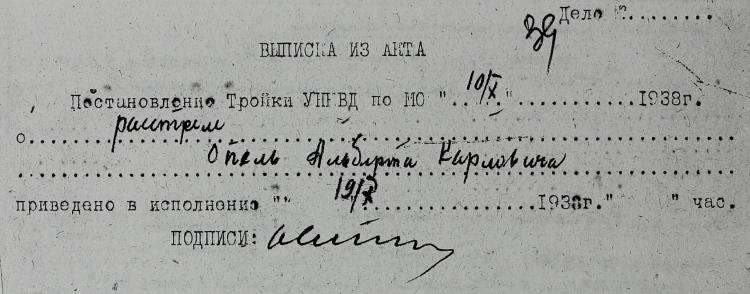 Дело №........
39
ВЫПИСКА ИЗ АКТА
Постановление Тройки УНКВД по МО "10/X"...........1938г.
о расстрел
Опель Альберта Карловича
приведено в исполнение "" 19/X ..............1938г." " час.
ПОДПИСИ: